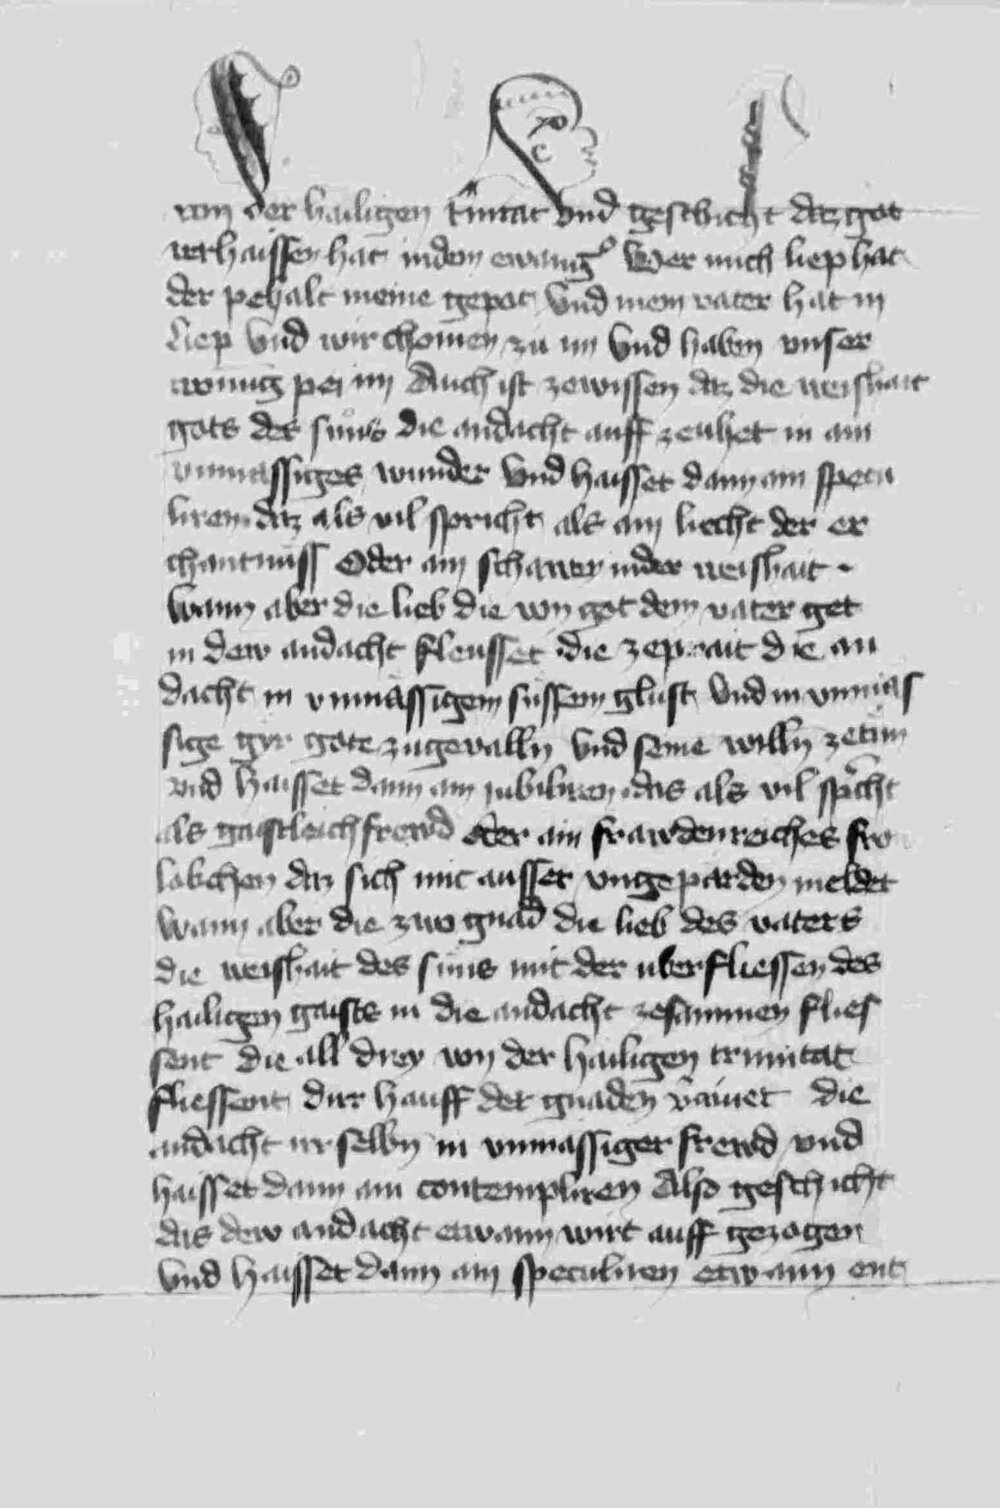 von der hailigen trinitat vnd geschicht daz got
verhaissen hat in dem ewang° Wer mich liep hat
der pehalt meine gepot vnd mein vater hat in
liep vnd wir chomen zu im vnd haben vnser
wonung pei im Auch ist zewissen daz die weishait
gots des suns die andacht auff zeuhet in ain
vnmassiges wunder vnd haisset dann ain specu
liren daz als vil spricht als ain liecht der er
chantnuss Oder ain schawen in der weishait
Wann aber die lieb die von got dem vater get
in dew andacht fleusset die die an
dacht in vnmassigem sussem glust vnd in vnmas
sige gir gote zugevalln vnd seine willn zetun
vnd haisset dann ain jubiliren das als vil spricht
als gaistleich frewd oder ain frawdenreiches fro
lokchen daz sich mit ausser vngeparden meldet
Wann aber die zwo gnad die lieb des vaters
die weishait des suns mit der uberfliessen des
hailigen gaists in die andacht zesammen flies
sent die all drey von der hailigen trinitat
fliessent der hauff der gnaden die
andacht ir selbn in vnmassiger frewd vnd
haisset dann ain contempliren Also geschicht
das dew andacht etwann wirt auff gezogen
vnd haisset dann ain speculiren etwann ent